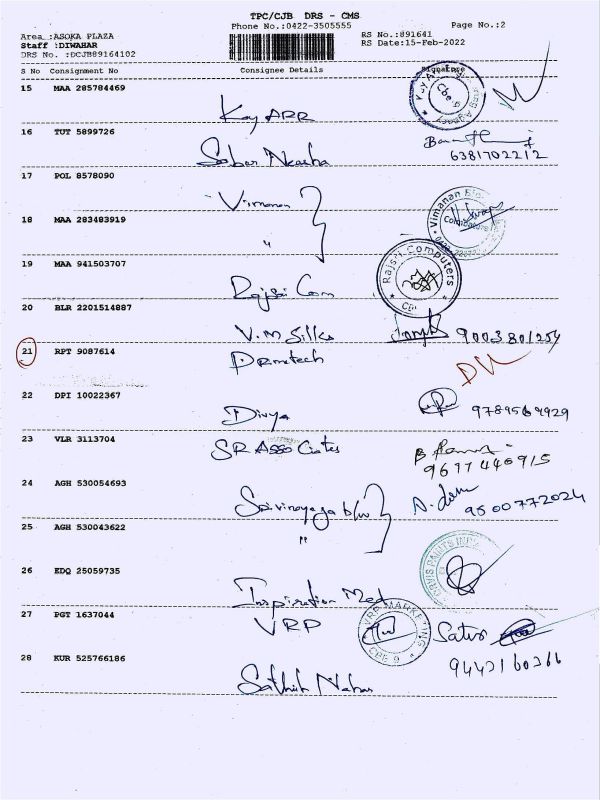 TPC/CJB DRS - CMS
Phone No.:0422-3505555
Page No.:2
Area :ASOKA PLAZA
RS No.:891641
Staff :DIWAHAR
RS Date:15-Feb-2022
DRS No. :DCJB89164102
S No Consignment No Consignee Details Signature
15 MAA 285784469
Kay ARR
16 TUT 5899726
6381702212
17 POL 8578090
Vimanan
18 MAA 283483919
"
Vimanan
19 MAA 941503707
Rajsri Computers
Rajsri Com
20 BLR 2201514887
V.M Silks 9003801254
21 RPT 9087614
22 DPI 10022367
Divya
23 VLR 3113704
SR Asso Ciates
9677440915
24 AGH 530054693
Srivinayaga
9500772024
25 AGH 530043622
"
26 EDQ 25059735
Inspiration Med
27 PGT 1637044
VRP
VRP MARKETING
CBE 9
28 KUR 525766186